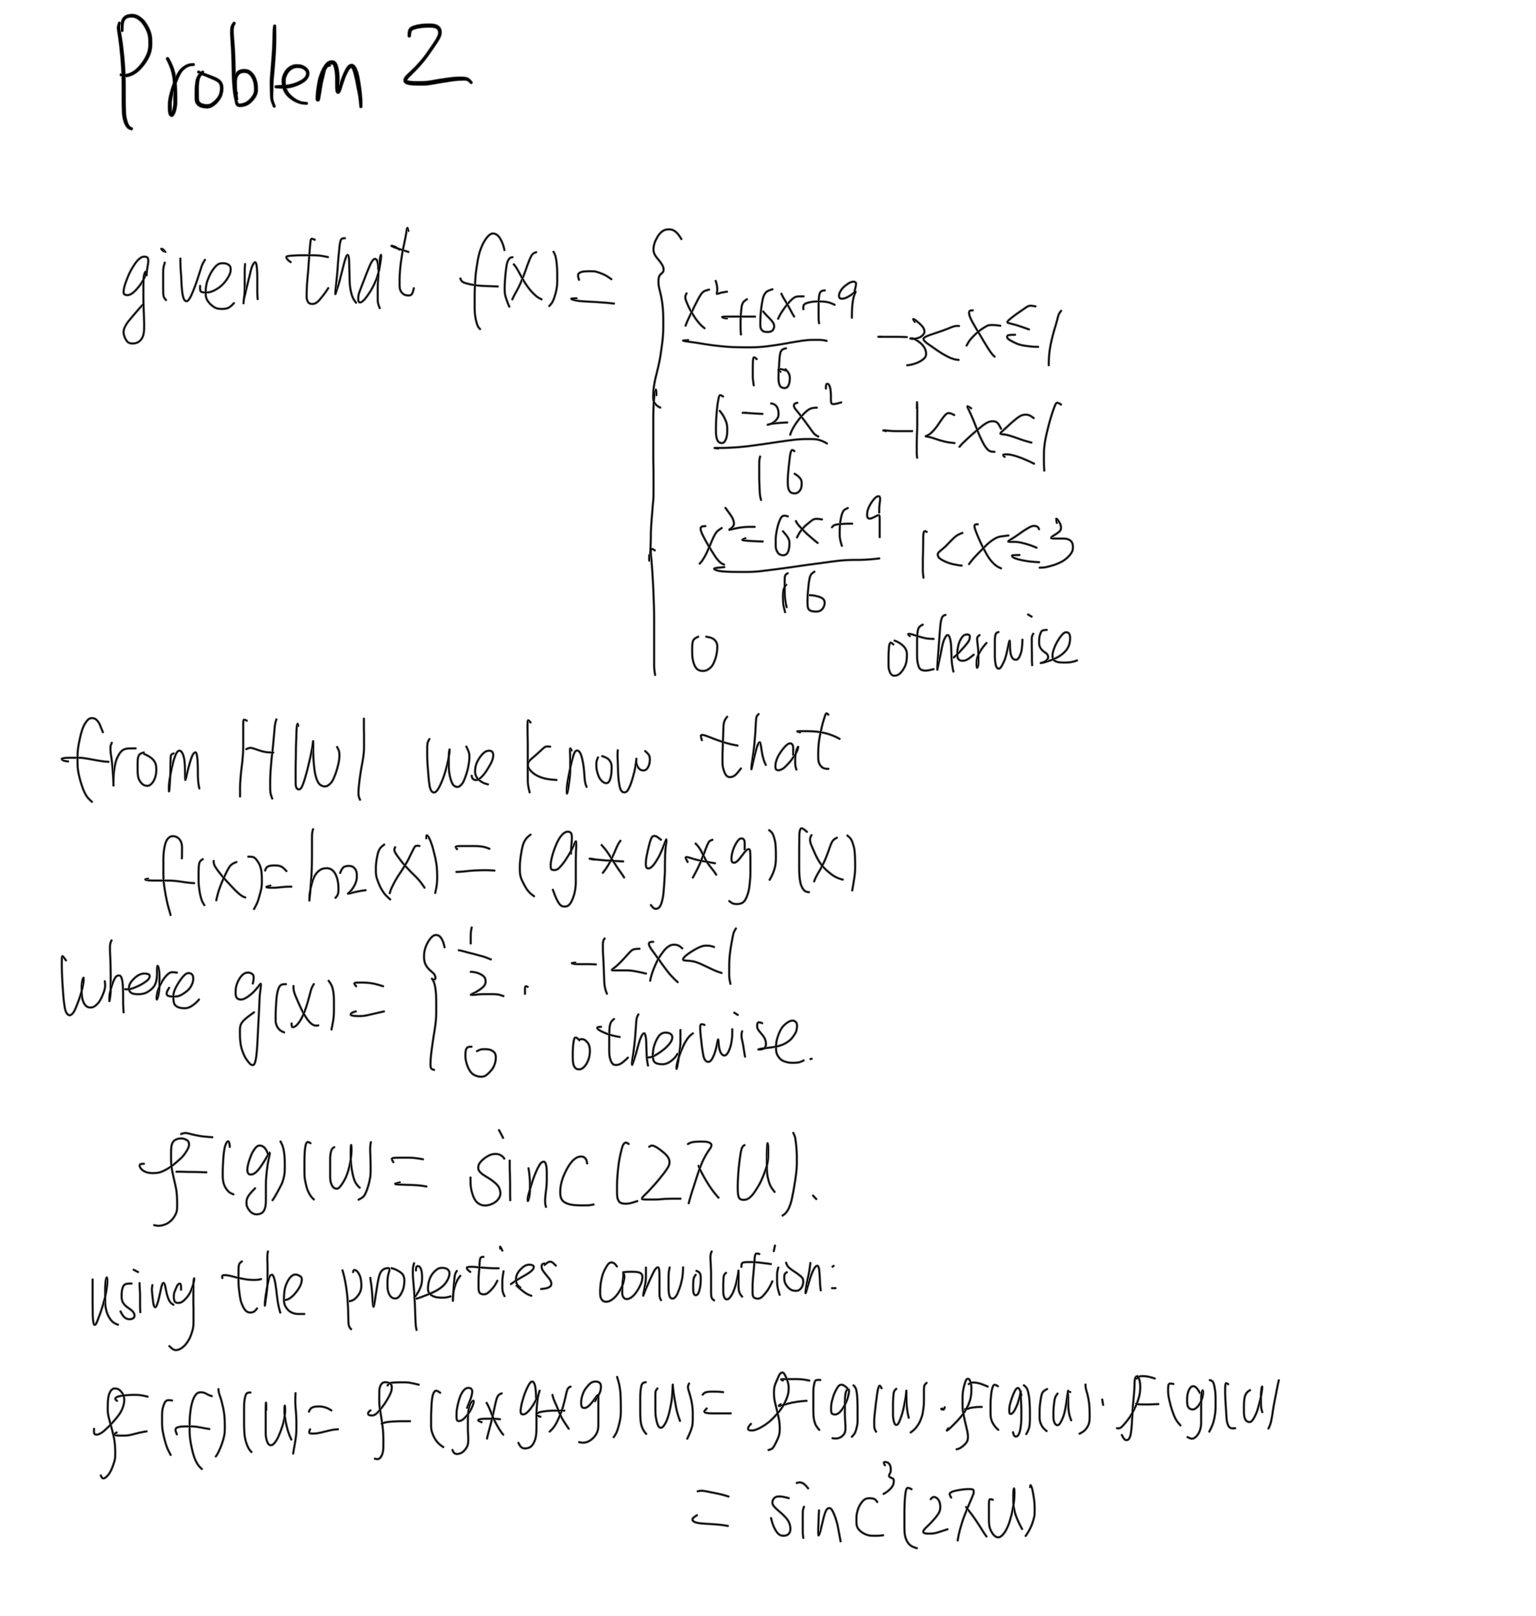 Problem 2
given that f(x) = {
x²+6x+9 / 16   -3<x≤1
6-2x² / 16   -1<x≤1
x²-6x+9 / 16   1<x≤3
0   otherwise
from HW1 we know that
f(x)=h2(x)=(g*g*g)(x)
where g(x) = { 1/2.   -1<x<1
0   otherwise.
F(g)(u) = sinc(2πu).
using the properties convolution:
F(f)(u) = F(g*g*g)(u) = F(g)(u)·F(g)(u)·F(g)(u)
= sinc³(2πu)